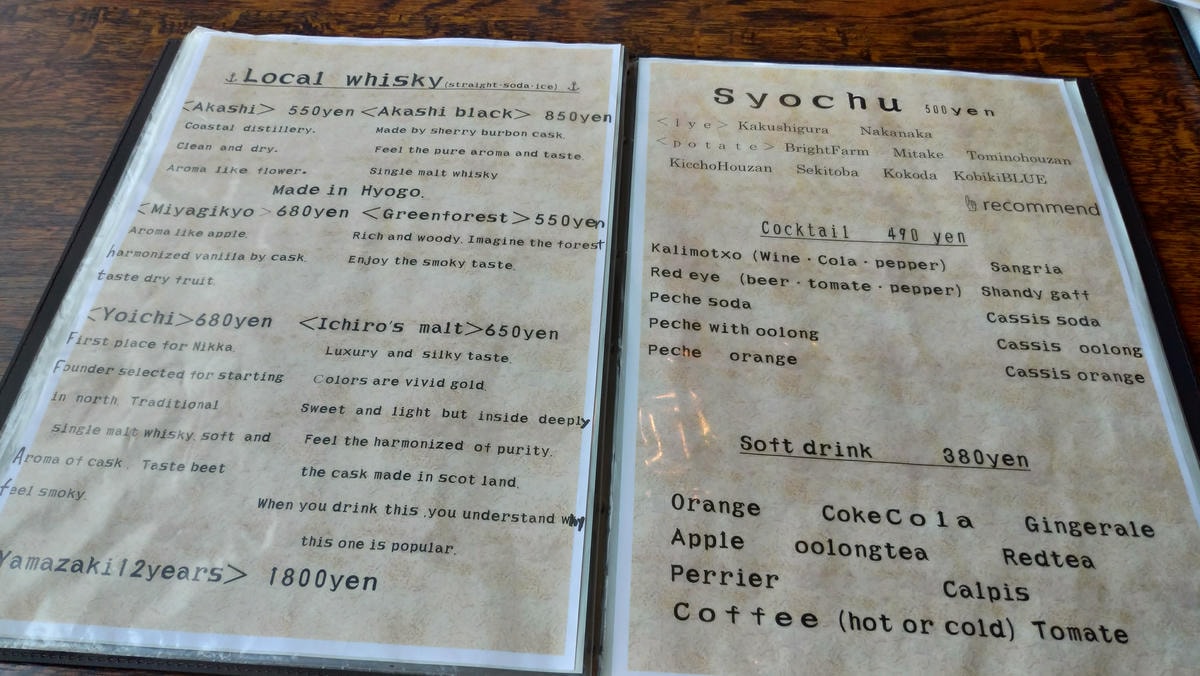 ⚓Local whisky(straight·soda·ice)⚓
<Akashi> 550yen <Akashi black> 850yen
Coastal distillery. Made by sherry burbon cask.
Clean and dry. Feel the pure aroma and taste.
Aroma like flower. Single malt whisky
Made in Hyogo.
<Miyagikyo>680yen <Greenforest>550yen
Aroma like apple. Rich and woody. Imagine the forest
harmonized vanilla by cask. Enjoy the smoky taste.
taste dry fruit.
<Yoichi>680yen <Ichiro's malt>650yen
First place for Nikka. Luxury and silky taste.
Founder selected for starting Colors are vivid gold.
in north. Traditional Sweet and light but inside deeply
single malt whisky. soft and Feel the harmonized of purity.
Aroma of cask. Taste beet the cask made in scot land.
feel smoky. When you drink this ,you understand why
this one is popular.
Yamazaki12years> 1800yen
Syochu 500yen
<lye> Kakushigura Nakanaka
<potate> BrightFarm Mitake Tominohouzan
KicchoHouzan Sekitoba Kokoda KobikiBLUE
recommend
Cocktail 490 yen
Kalimotxo (Wine·Cola·pepper) Sangria
Red eye (beer·tomate·pepper) Shandy gaff
Peche soda Cassis soda
Peche with oolong Cassis oolong
Peche orange Cassis orange
Soft drink 380yen
Orange CokeCola Gingerale
Apple oolongtea Redtea
Perrier Calpis
Coffee (hot or cold) Tomate